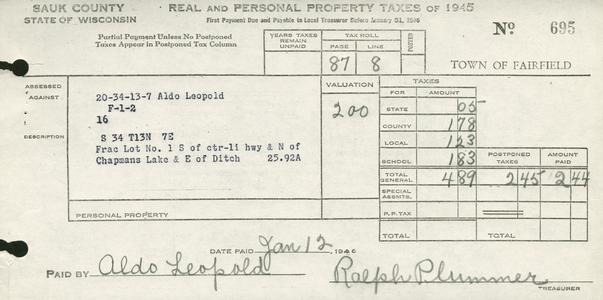 SAUK COUNTY REAL AND PERSONAL PROPERTY TAXES OF 1945
STATE OF WISCONSIN First Payment Due and Payable to Local Treasurer Before January 31, 1946
Partial Payment Unless No Postponed
Taxes Appear in Postponed Tax Column
YEARS TAXES REMAIN UNPAID TAX ROLL POSTED
PAGE LINE
87 8
No 695
TOWN OF FAIRFIELD
ASSESSED AGAINST
20-34-13-7 Aldo Leopold
F-1-2
16
DESCRIPTION
S 34 T13N 7E
Frac Lot No. 1 S of ctr-li hwy & N of
Chapmans Lake & E of Ditch 25.92A
PERSONAL PROPERTY
VALUATION
200
TAXES
FOR AMOUNT
STATE 05
COUNTY 178
LOCAL 123
SCHOOL 183 POSTPONED TAXES AMOUNT PAID
TOTAL GENERAL 489 245 244
SPECIAL ASSMTS.
P.P. TAX
TOTAL TOTAL
DATE PAID Jan 12, 1946
PAID BY Aldo Leopold Ralph Plummer
TREASURER